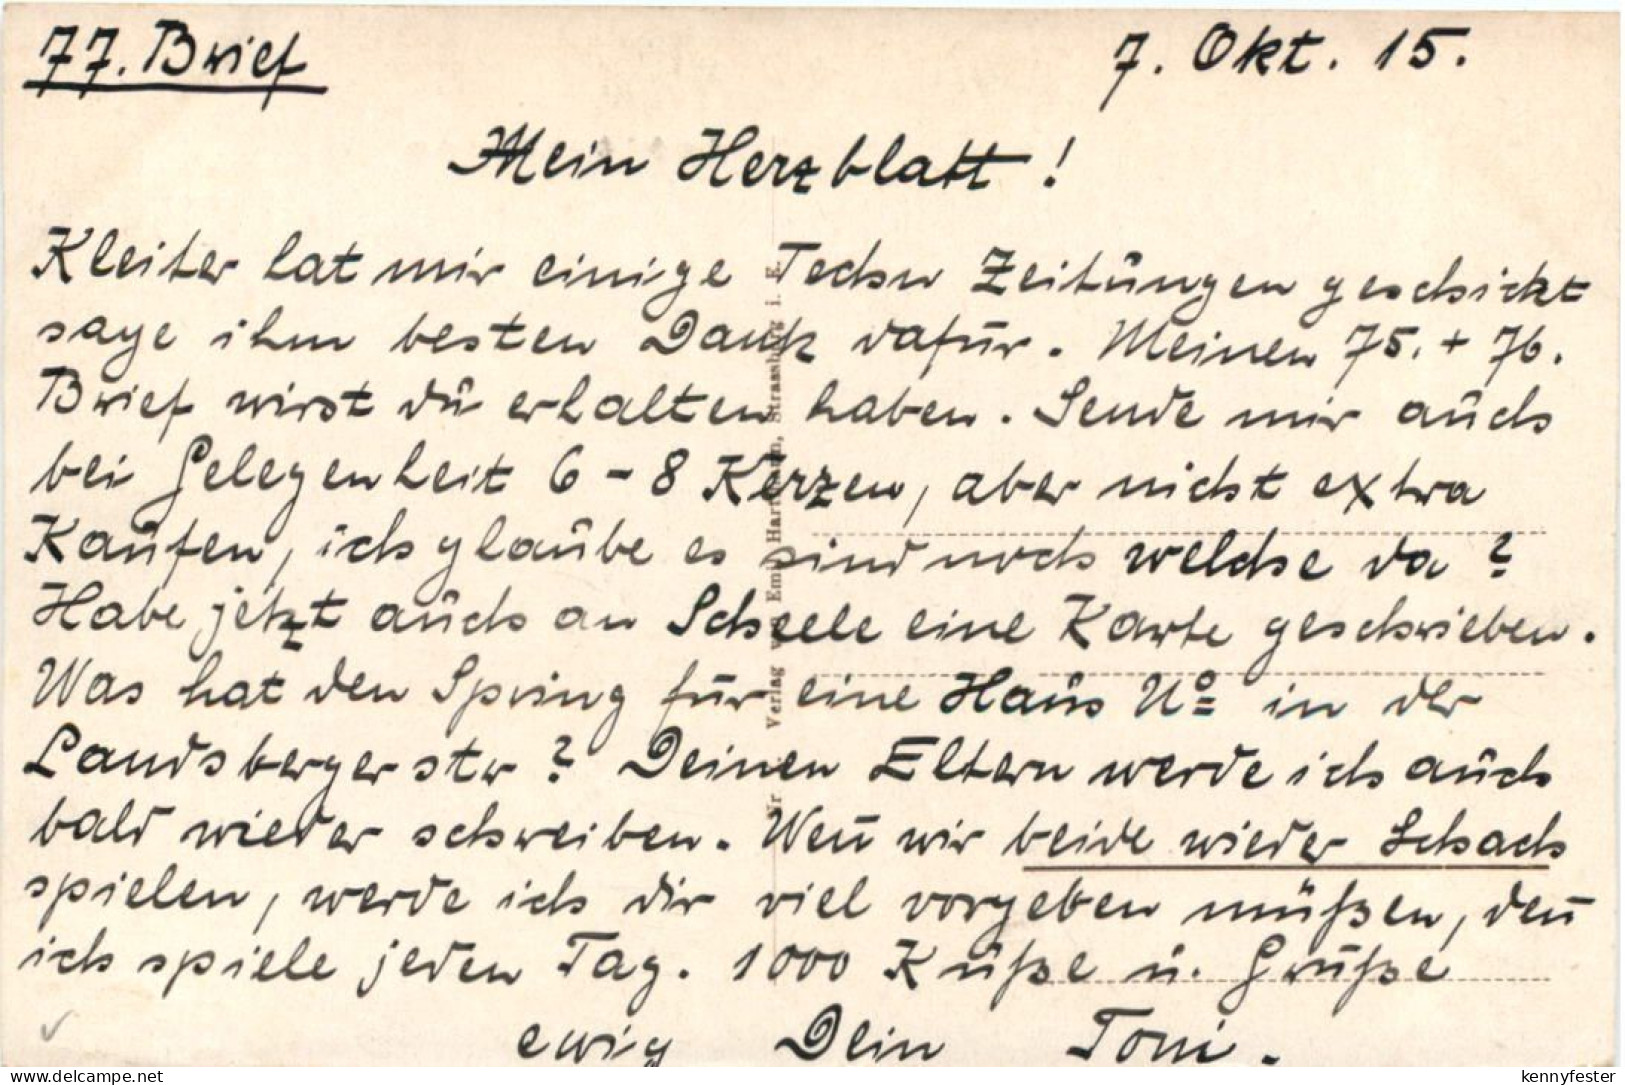 77. Brief 7. Okt. 15.
Mein Herzblatt!
Kleiter hat mir einige Techn Zeitungen geschickt
sage ihm besten Dank dafür. Meinen 75. + 76.
Brief wirst du erhalten haben. Sende mir auch
bei Gelegenheit 6 - 8 Kerzen, aber nicht extra
Kaufen, ich glaube es sind noch welche da?
Habe jetzt auch an Scheele eine Karte geschrieben.
Was hat den Spring für eine Haus No in der
Landsbergerstr? Deinen Eltern werde ich auch
bald wieder schreiben. Wen̄ wir beide wieder Schach
spielen, werde ich dir viel vorgeben müßen, den̄
ich spiele jeden Tag. 1000 Küße u. Grüße
ewig Dein Toni.
Nr. Verlag v. Emil Hartmann, Strassburg i. E.
delcampe.net
kennyfester